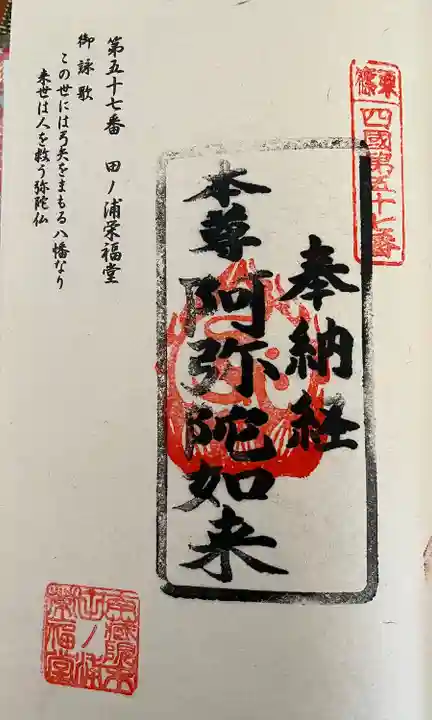 四國第五十七番
奉納経
本尊阿弥陀如来
第五十七番 田ノ浦栄福堂
御詠歌
この世には弓矢をまもる八幡なり
来世は人を救う弥陀仏